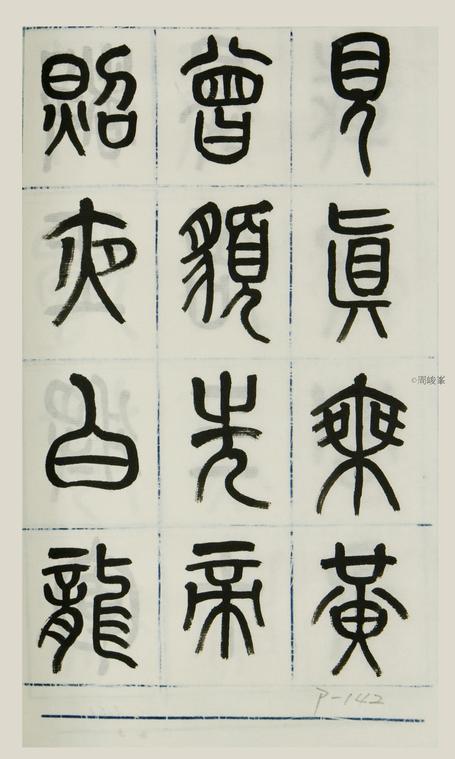 見眞乘黃
曾貌先帝
照夜白龍
©周峻峯
P-142